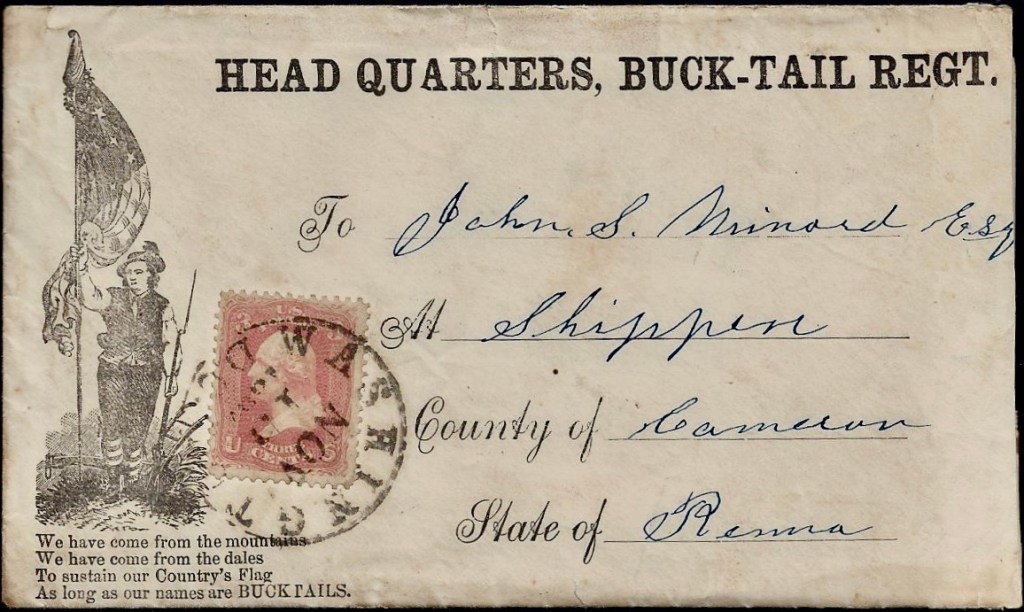 HEAD QUARTERS, BUCK-TAIL REGT.
To John. S. Minard Esq
At Shippen
County of Cameron
State of Penna
WASHINGTON
NOV
U
We have come from the mountains
We have come from the dales
To sustain our Country's Flag
As long as our names are BUCKTAILS.